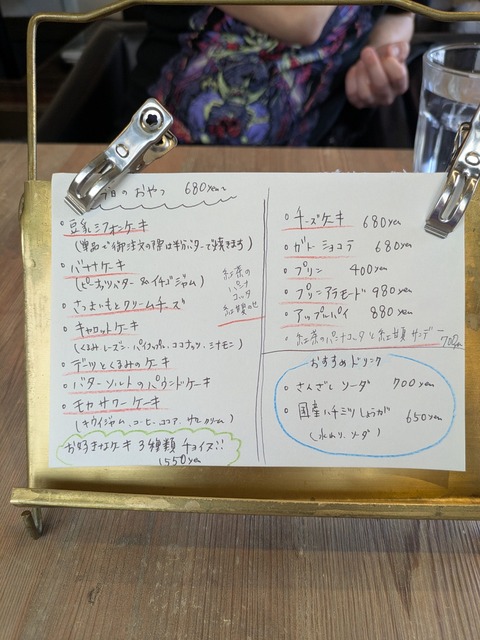 今日のおやつ 680yen~
・豆乳シフォンケーキ
(単品で御注文の際は半分バターで焼きます)
・バナナケーキ
(ピーナッツバター &イチゴジャム)
・さつまいもとクリームチーズ
・キャロットケーキ
(くるみ、レーズン、パイナップル、ココナッツ、シナモン)
・デーツとくるみのケーキ
・バターソルトのパウンドケーキ
・モカサワーケーキ
(キウイジャム、コーヒー、ココア、サワークリーム)
お好きなケーキ3種類チョイス!!
1550yen
紅茶の
パンナ
コッタ
紅頬のせ
・チーズケーキ 680yen
・ガトーショコラ 680yen
・プリン 400yen
・プリンアラモード 980yen
・アップルパイ 880yen
・紅茶のパンナコッタと紅頬サンデー
700yen
おすすめドリンク
・さんざしソーダ 700yen
・国産ハチミツしょうが 650yen
(水わり、ソーダ)